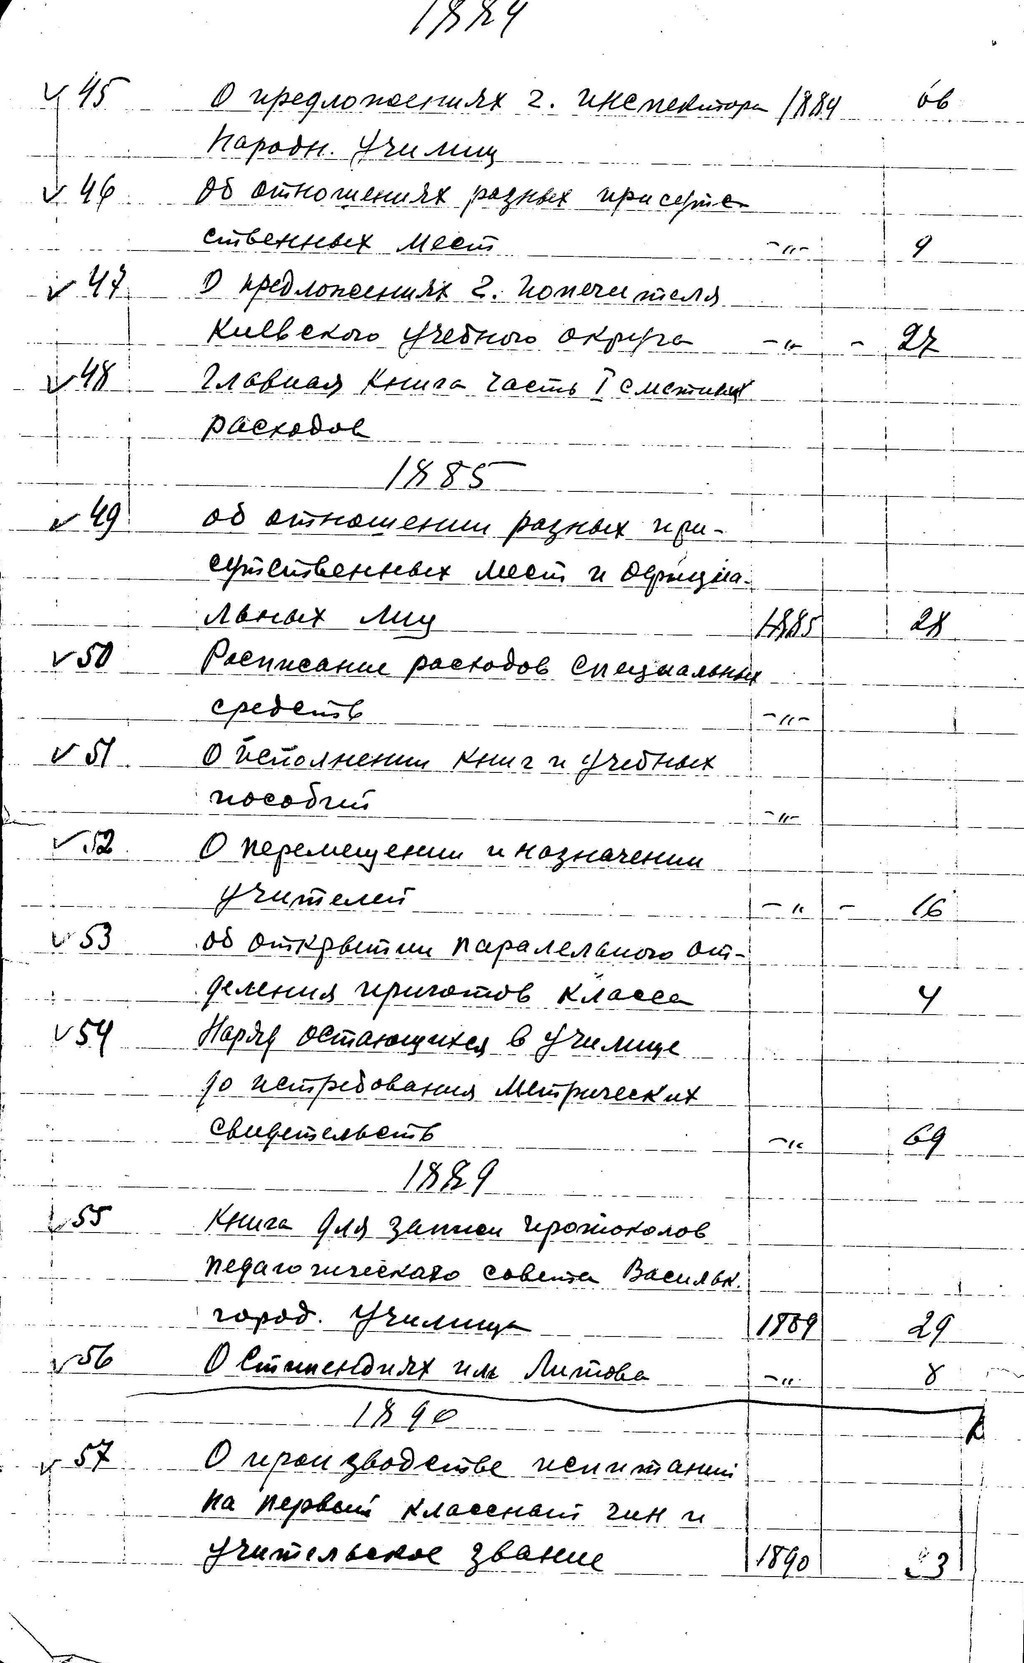 1884
45 О предложениях г. инспектора 1884
Народн. Училищ
46 об отношениях разных присутс-
ственных мест -"- 9
47 О предложениях г. Попечителя
Киевского учебного округа -"- - 27
48 Главная Книга часть I сметных
расходов
1885
49 об отношении разных при-
сутственных мест и официа-
льных лиц 1885 28
50 Росписание расходов специальных
средств -"-
51 О исполнении книг и учебных
пособий -"-
52 О перемещении и назначении
учителей -"- - 16
53 об открытии паралельного от-
деления приготов класса 4
54 Наряд остающихся в училище
до истребования метрических
свидетельств -"- 69
1889
55 Книга для записи протоколов
педагогического совета Васильк.
город. Училища 1889 29
56 О Стипендиях им. Литова -"- 8
1890
57 О производстве испытаний
на первый классный чин и
учительское звание 1890